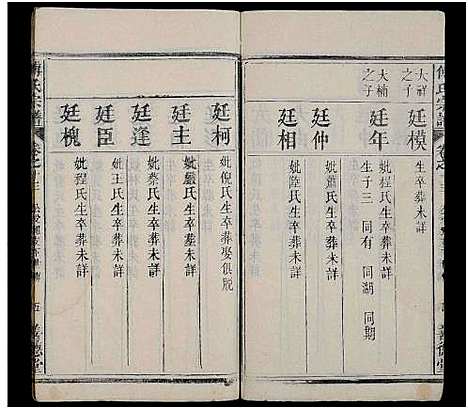 傅氏宗譜
卷之十三
大祥之子
廷模
生卒葬未詳
大楠之子
廷年
妣程氏生卒葬未詳
生子三 同有 同湖 同期
廷仲
妣蕭氏生卒葬未詳
廷相
妣陸氏生卒葬未詳
廷柯
妣倪氏生卒葬娶俱脱
廷主
妣嚴氏生卒葬未詳
廷逢
妣蔡氏生卒葬未詳
廷臣
妣王氏生卒葬未詳
廷槐
妣程氏生卒葬未詳
傅氏宗譜
卷之十三
五